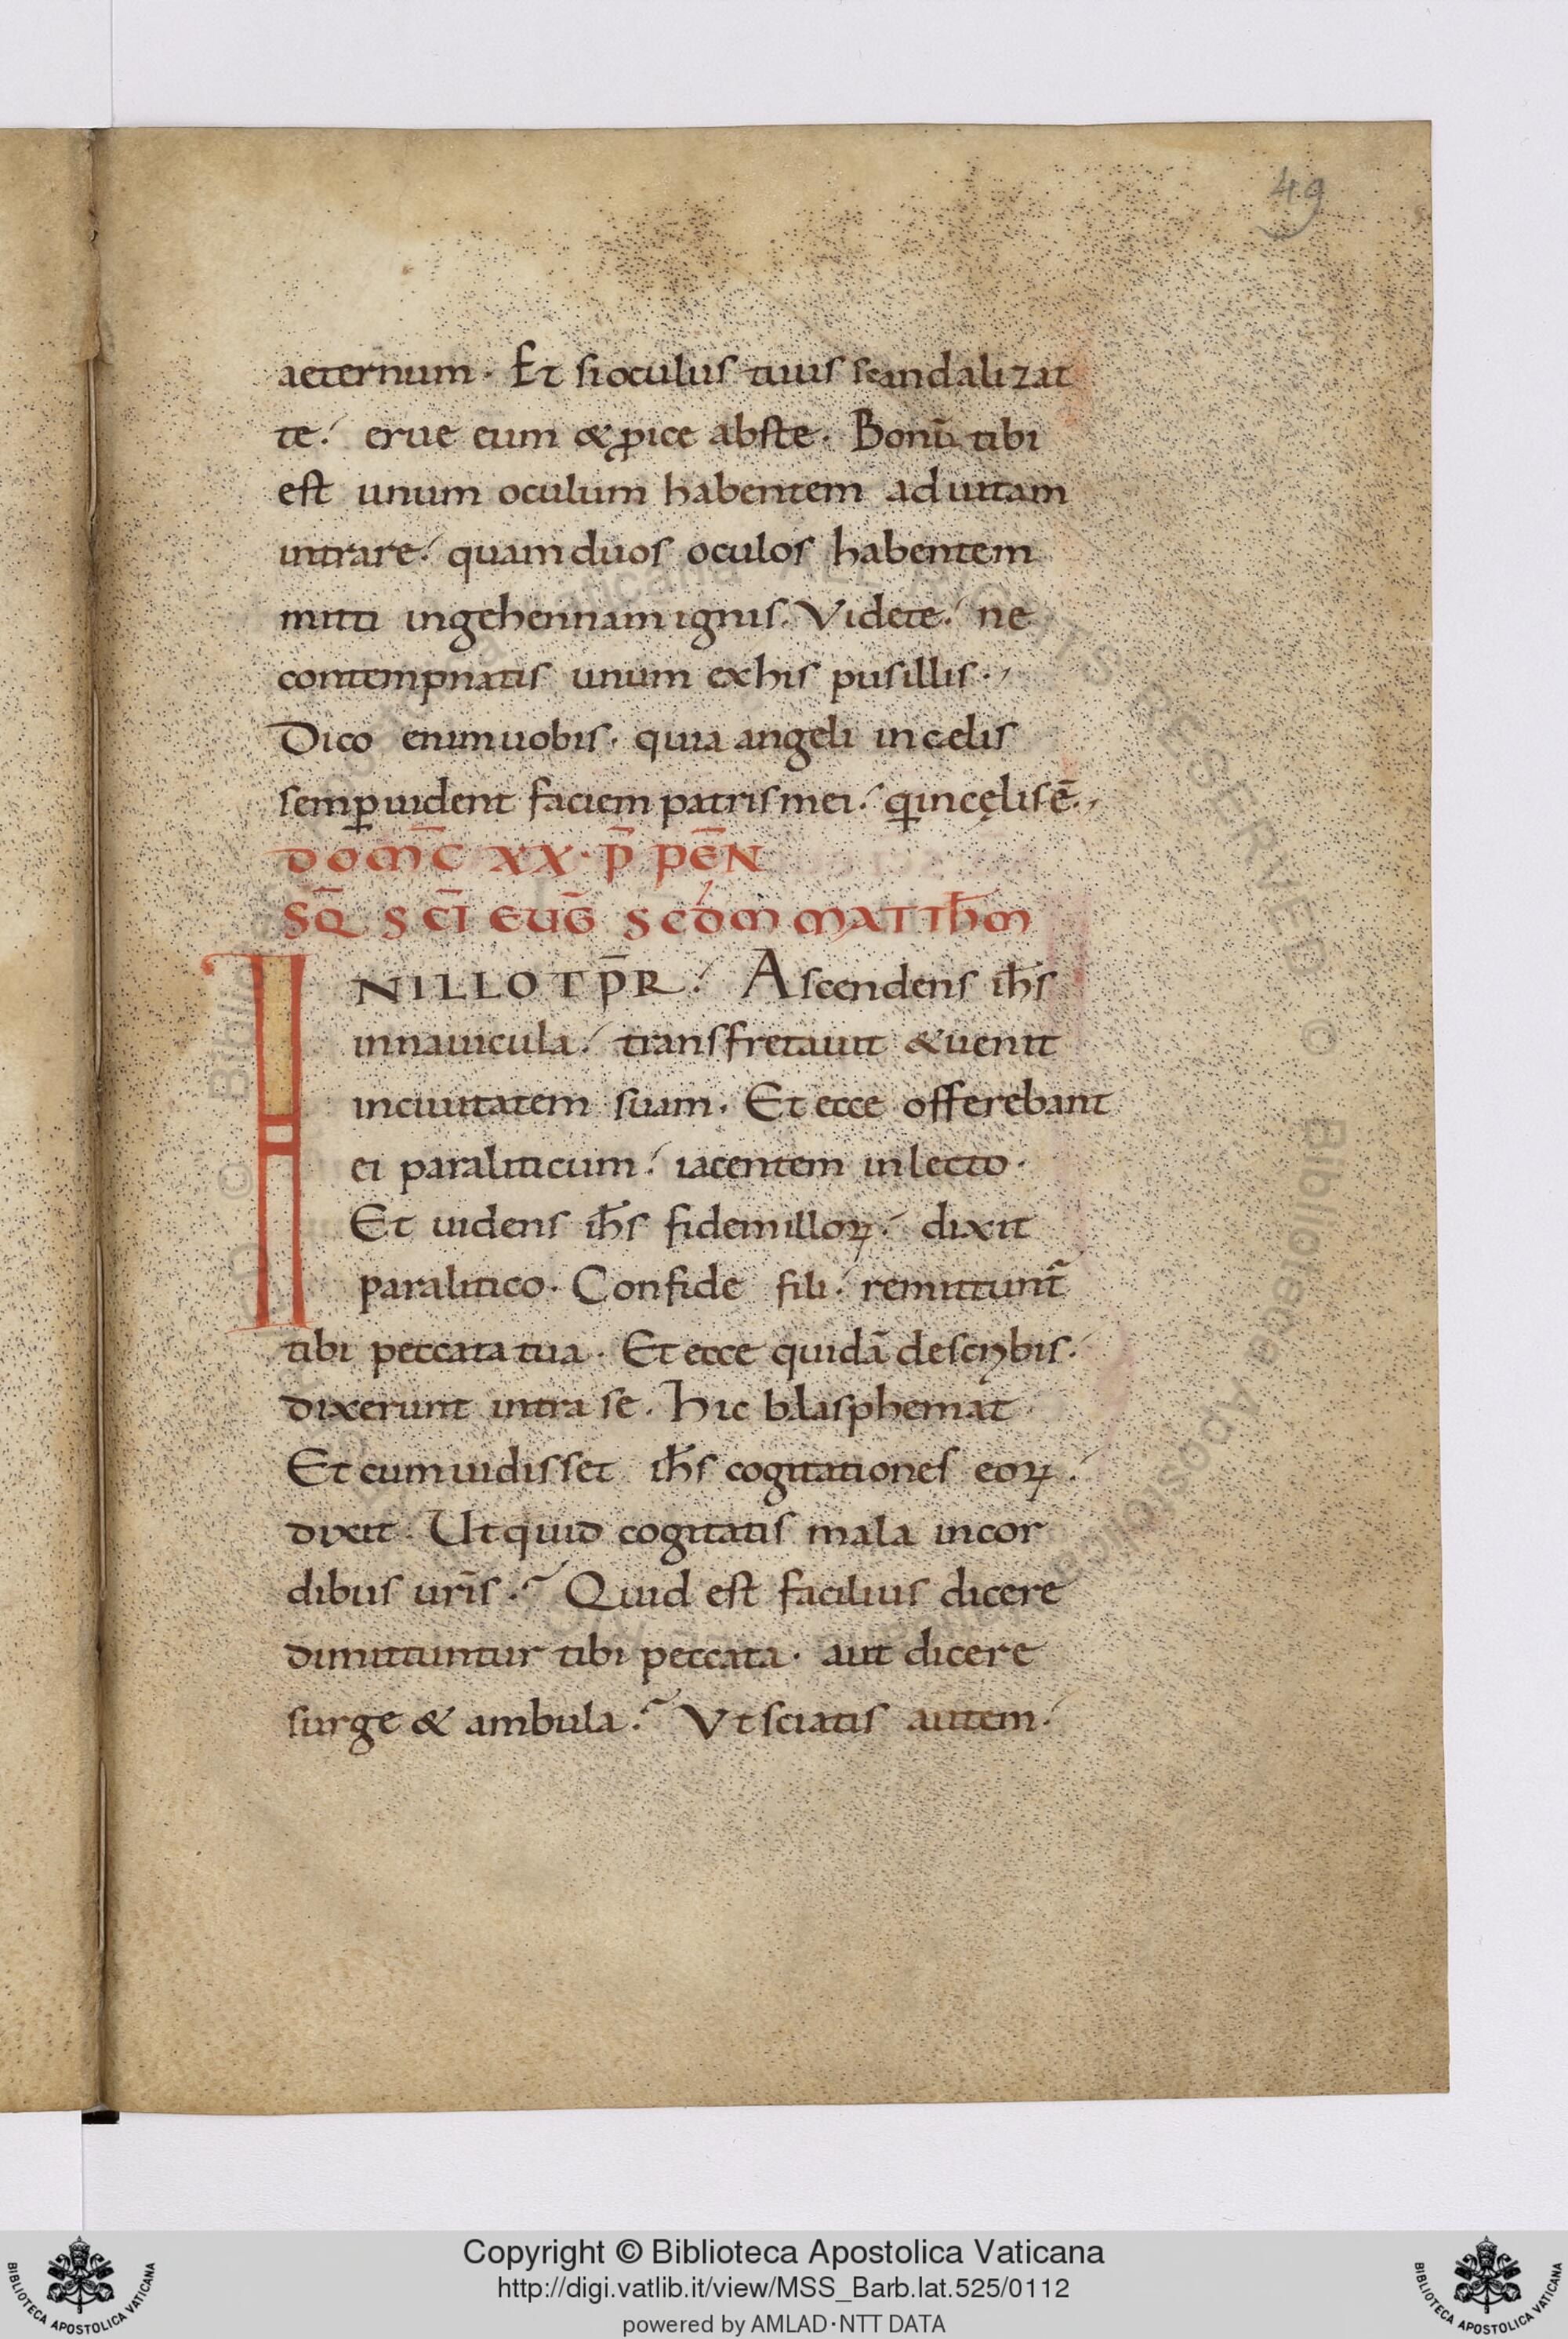 49
aeternum. Et si oculus tuus scandalizat
te. erue eum & ꝓice abste. Bonū tibi
est unum oculum habentem ad uitam
intrare. quam duos oculos habentem
mitti in gehennam ignis. Videte. ne
contempnatis unum ex his pusillis.
Dico enim uobis. quia angeli in cęlis
semꝑ uident faciem patris mei. qͥ in cęlis ē.
DOM̄C XX. P̄ PĒN
SQ̄ SC̄I EUḠ SCDM MATTHM
IN ILLO TP̄R. Ascendens ihs
in nauicula. transfretauit & uenit
in ciuitatem suam. Et ecce offerebant
ei paraliticum. iacentem in lecto.
Et uidens ihs fidem illoꝝ. dixit
paralitico. Confide fili. remittunt᷑
tibi peccata tua. Et ecce quidā de scribis.
dixerunt intra se. Hic blasphemat
Et cum uidisset ihs cogitationes eoꝝ.
dixit. Ut quid cogitatis mala in cor
dibus uris̄. Quid est facilius dicere
dimittuntur tibi peccata. aut dicere
surge & ambula. Vt sciatis autem.
Copyright © Biblioteca Apostolica Vaticana
http://digi.vatlib.it/view/MSS_Barb.lat.525/0112
powered by AMLAD·NTT DATA
BIBLIOTECA APOSTOLICA VATICANA
BIBLIOTECA APOSTOLICA VATICANA